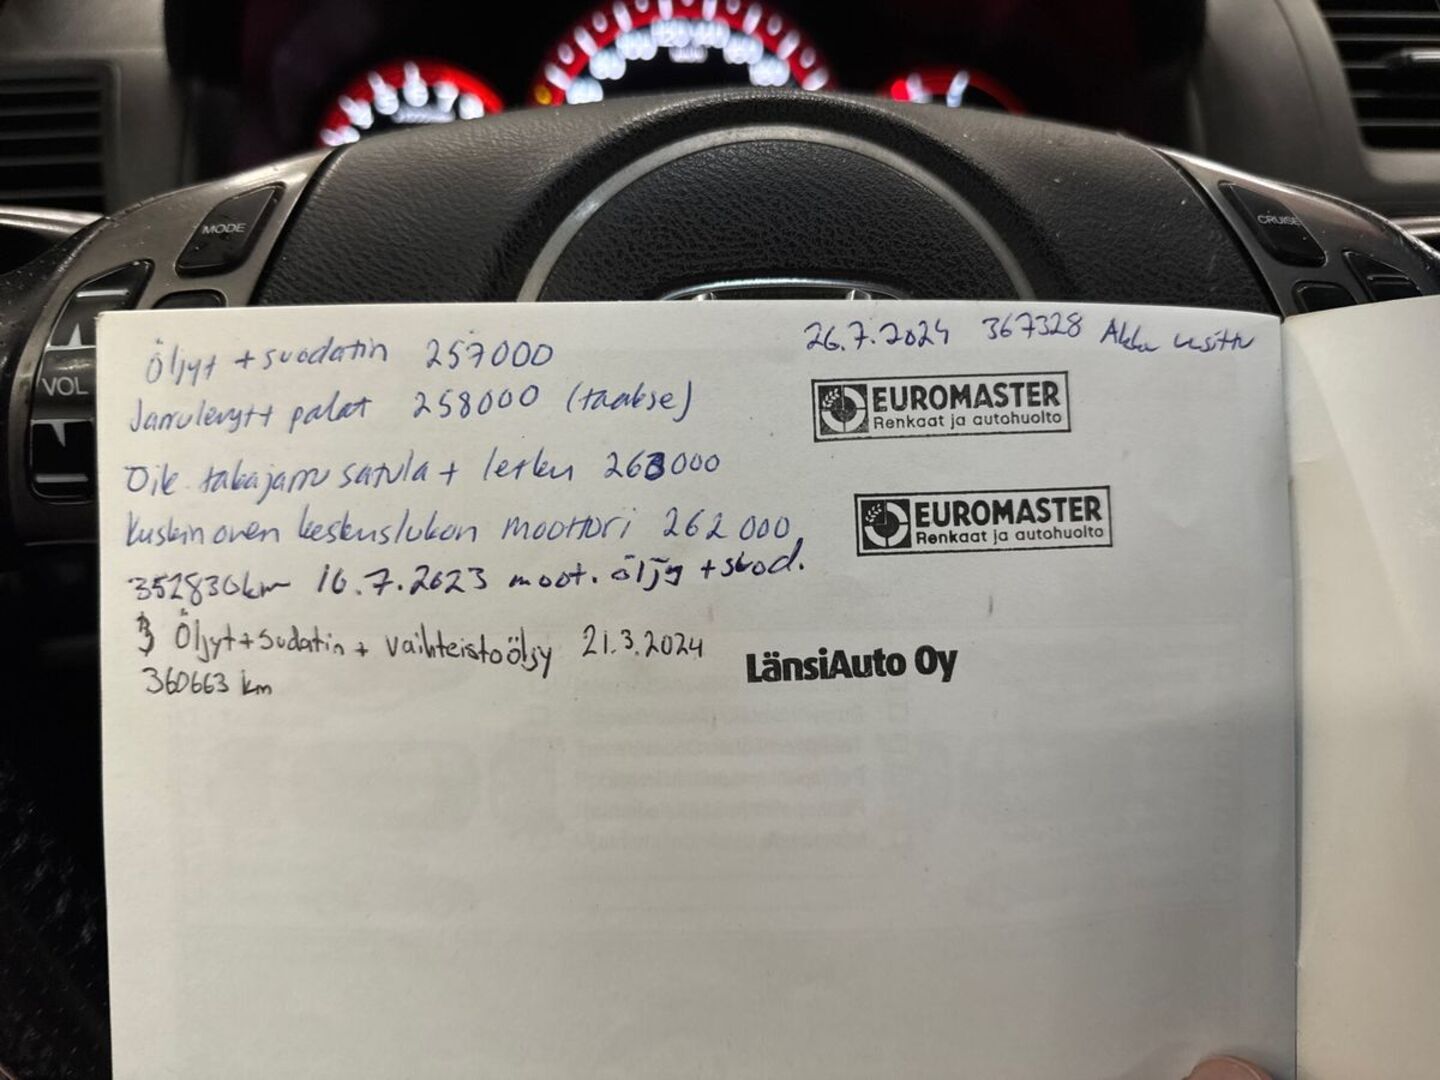 MODE
CRUISE
VOL
Öljyt + suodatin 257000
Jarrulevyt+ palat 258000 (taakse)
Oik. takajarru satula + letku 263000
Kuskin oven keskuslukon moottori 262 000
352830km 16.7.2023 moot. öljy + suod.
Öljyt + Sudatin + vaihteistoöljy 21.3.2024
360663 km
26.7.2024 367328 Akku uusittu
EUROMASTER
Renkaat ja autohuolto
EUROMASTER
Renkaat ja autohuolto
LänsiAuto Oy